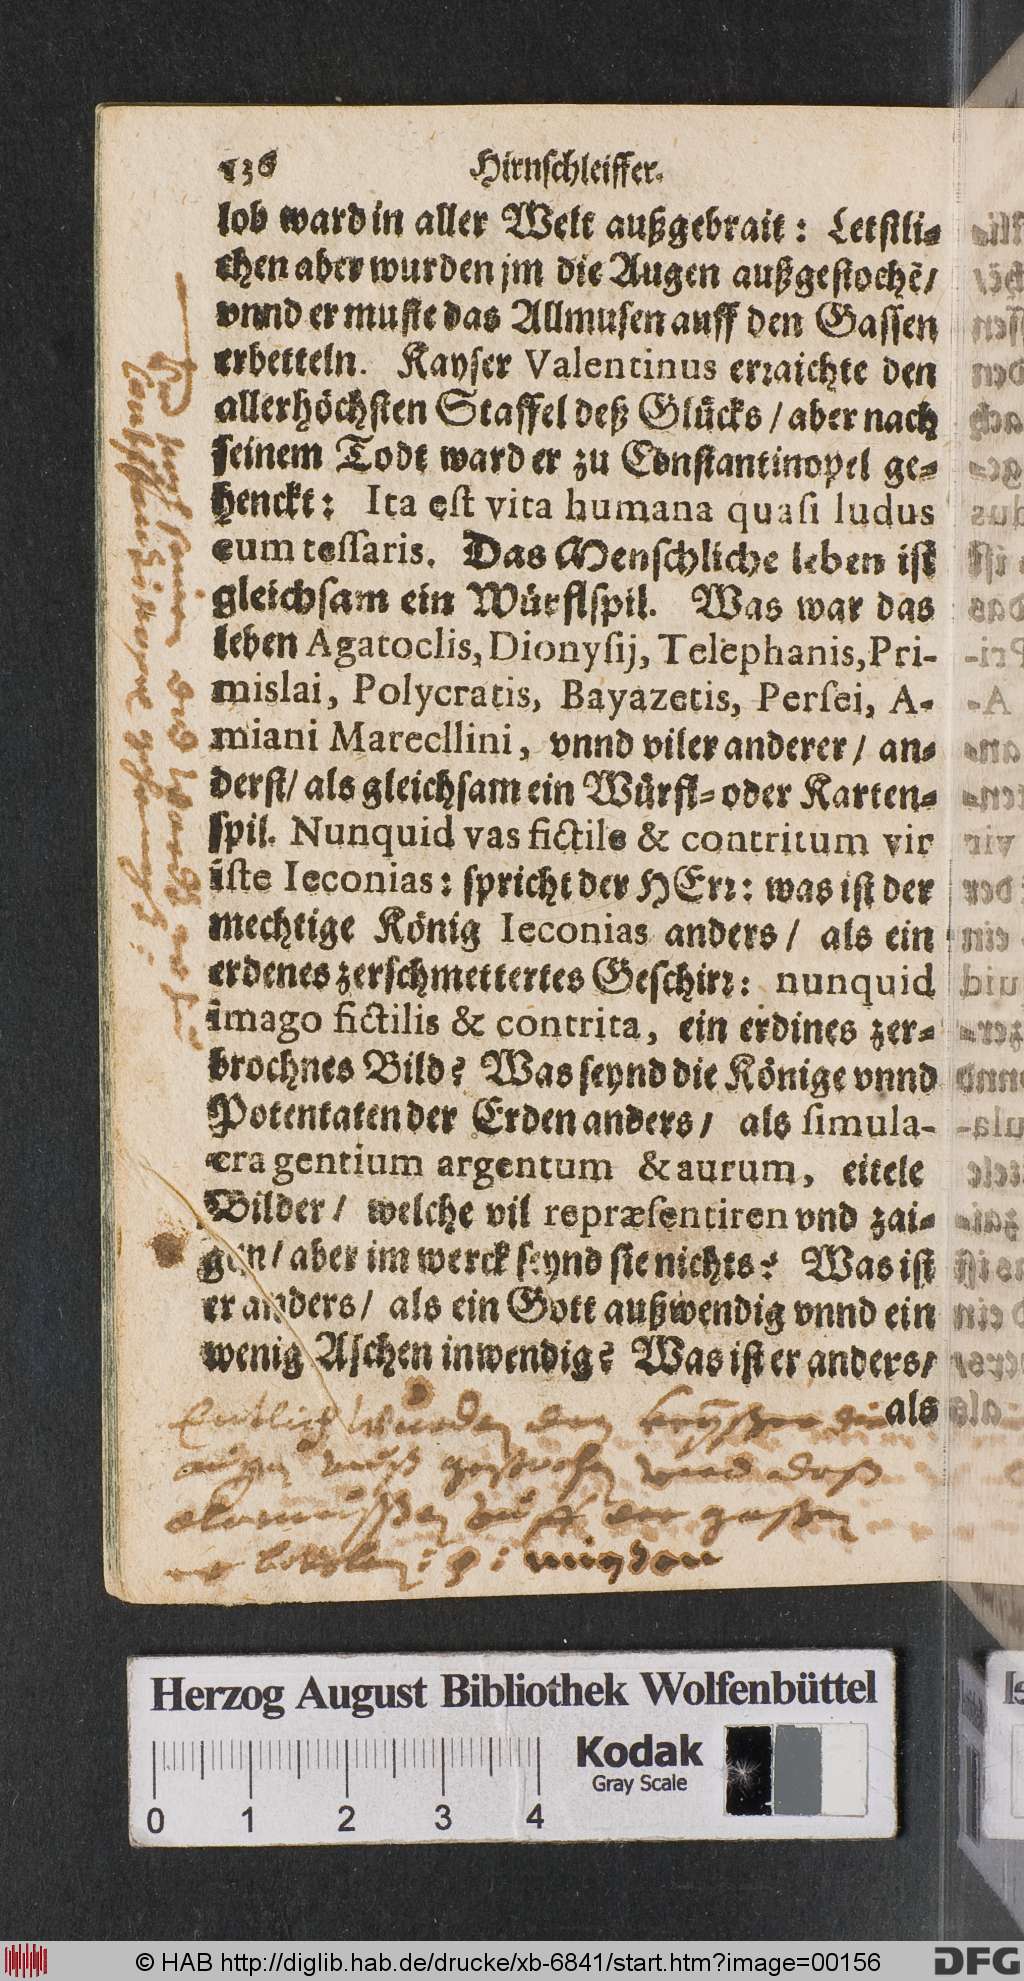 136 Hirnschleiffer.
lob ward in aller Welt außgebrait: Letstli-
chen aber wurden jm die Augen außgestochẽ/
vnnd er muste das Allmusen auff den Gassen
erbetteln. Kayser Valentinus erꝛaichte den
allerhöchsten Staffel deß Glücks / aber nach
seinem Todt ward er zu Constantinopel ge-
henckt: Ita est vita humana quasi ludus
cum tessaris. Das Menschliche leben ist
gleichsam ein Würflspil. Was war das
leben Agatoclis, Dionysij, Telephanis, Pri-
mislai, Polycratis, Bayazetis, Persei, A-
miani Marecllini, vnnd viler anderer / an-
derst/ als gleichsam ein Würfl-oder Karten-
spil. Nunquid vas fictile & contritum vir
iste Ieconias: spricht der HErꝛ: was ist der
mechtige König Ieconias anders / als ein
erdenes zerschmettertes Geschirꝛ: nunquid
imago fictilis & contrita, ein erdines zer-
brochnes Bild? Was seynd die Könige vnnd
Potentaten der Erden anders / als simula-
cra gentium argentum & aurum, eitele
Bilder / welche vil repræsentiren vnd zai-
gen / aber im werck seynd sie nichts? Was ist
er anders / als ein Gott außwendig vnnd ein
wenig Aschen inwendig? Was ist er anders /
als
Entlich wurden den die
augen auß gestochen vnd daß
auff der gaßen
Herzog August Bibliothek Wolfenbüttel
Kodak
Gray Scale
0 1 2 3 4
© HAB http://diglib.hab.de/drucke/xb-6841/start.htm?image=00156
DFG